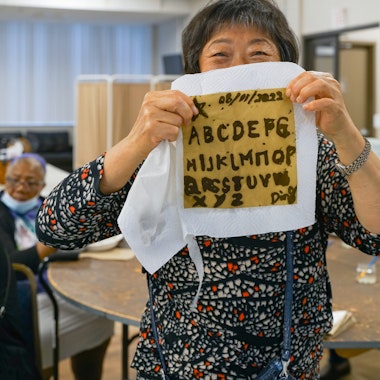 X 06/11/2022
ABCDEFG
HIJKLMNOP
QRSTUVW
XYZ